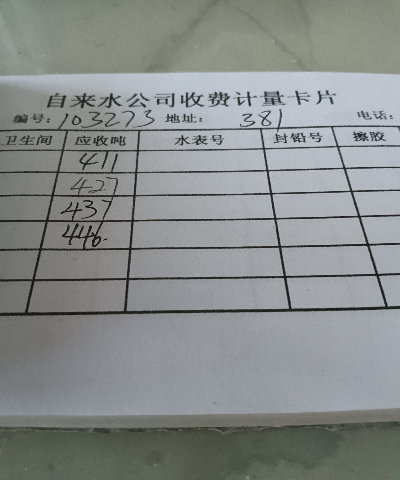 自来水公司收费计量卡片
编号: 103273 地址: 381 电话:
卫生间 应收吨 水表号 封铅号 擦胶
411
427
437
446.